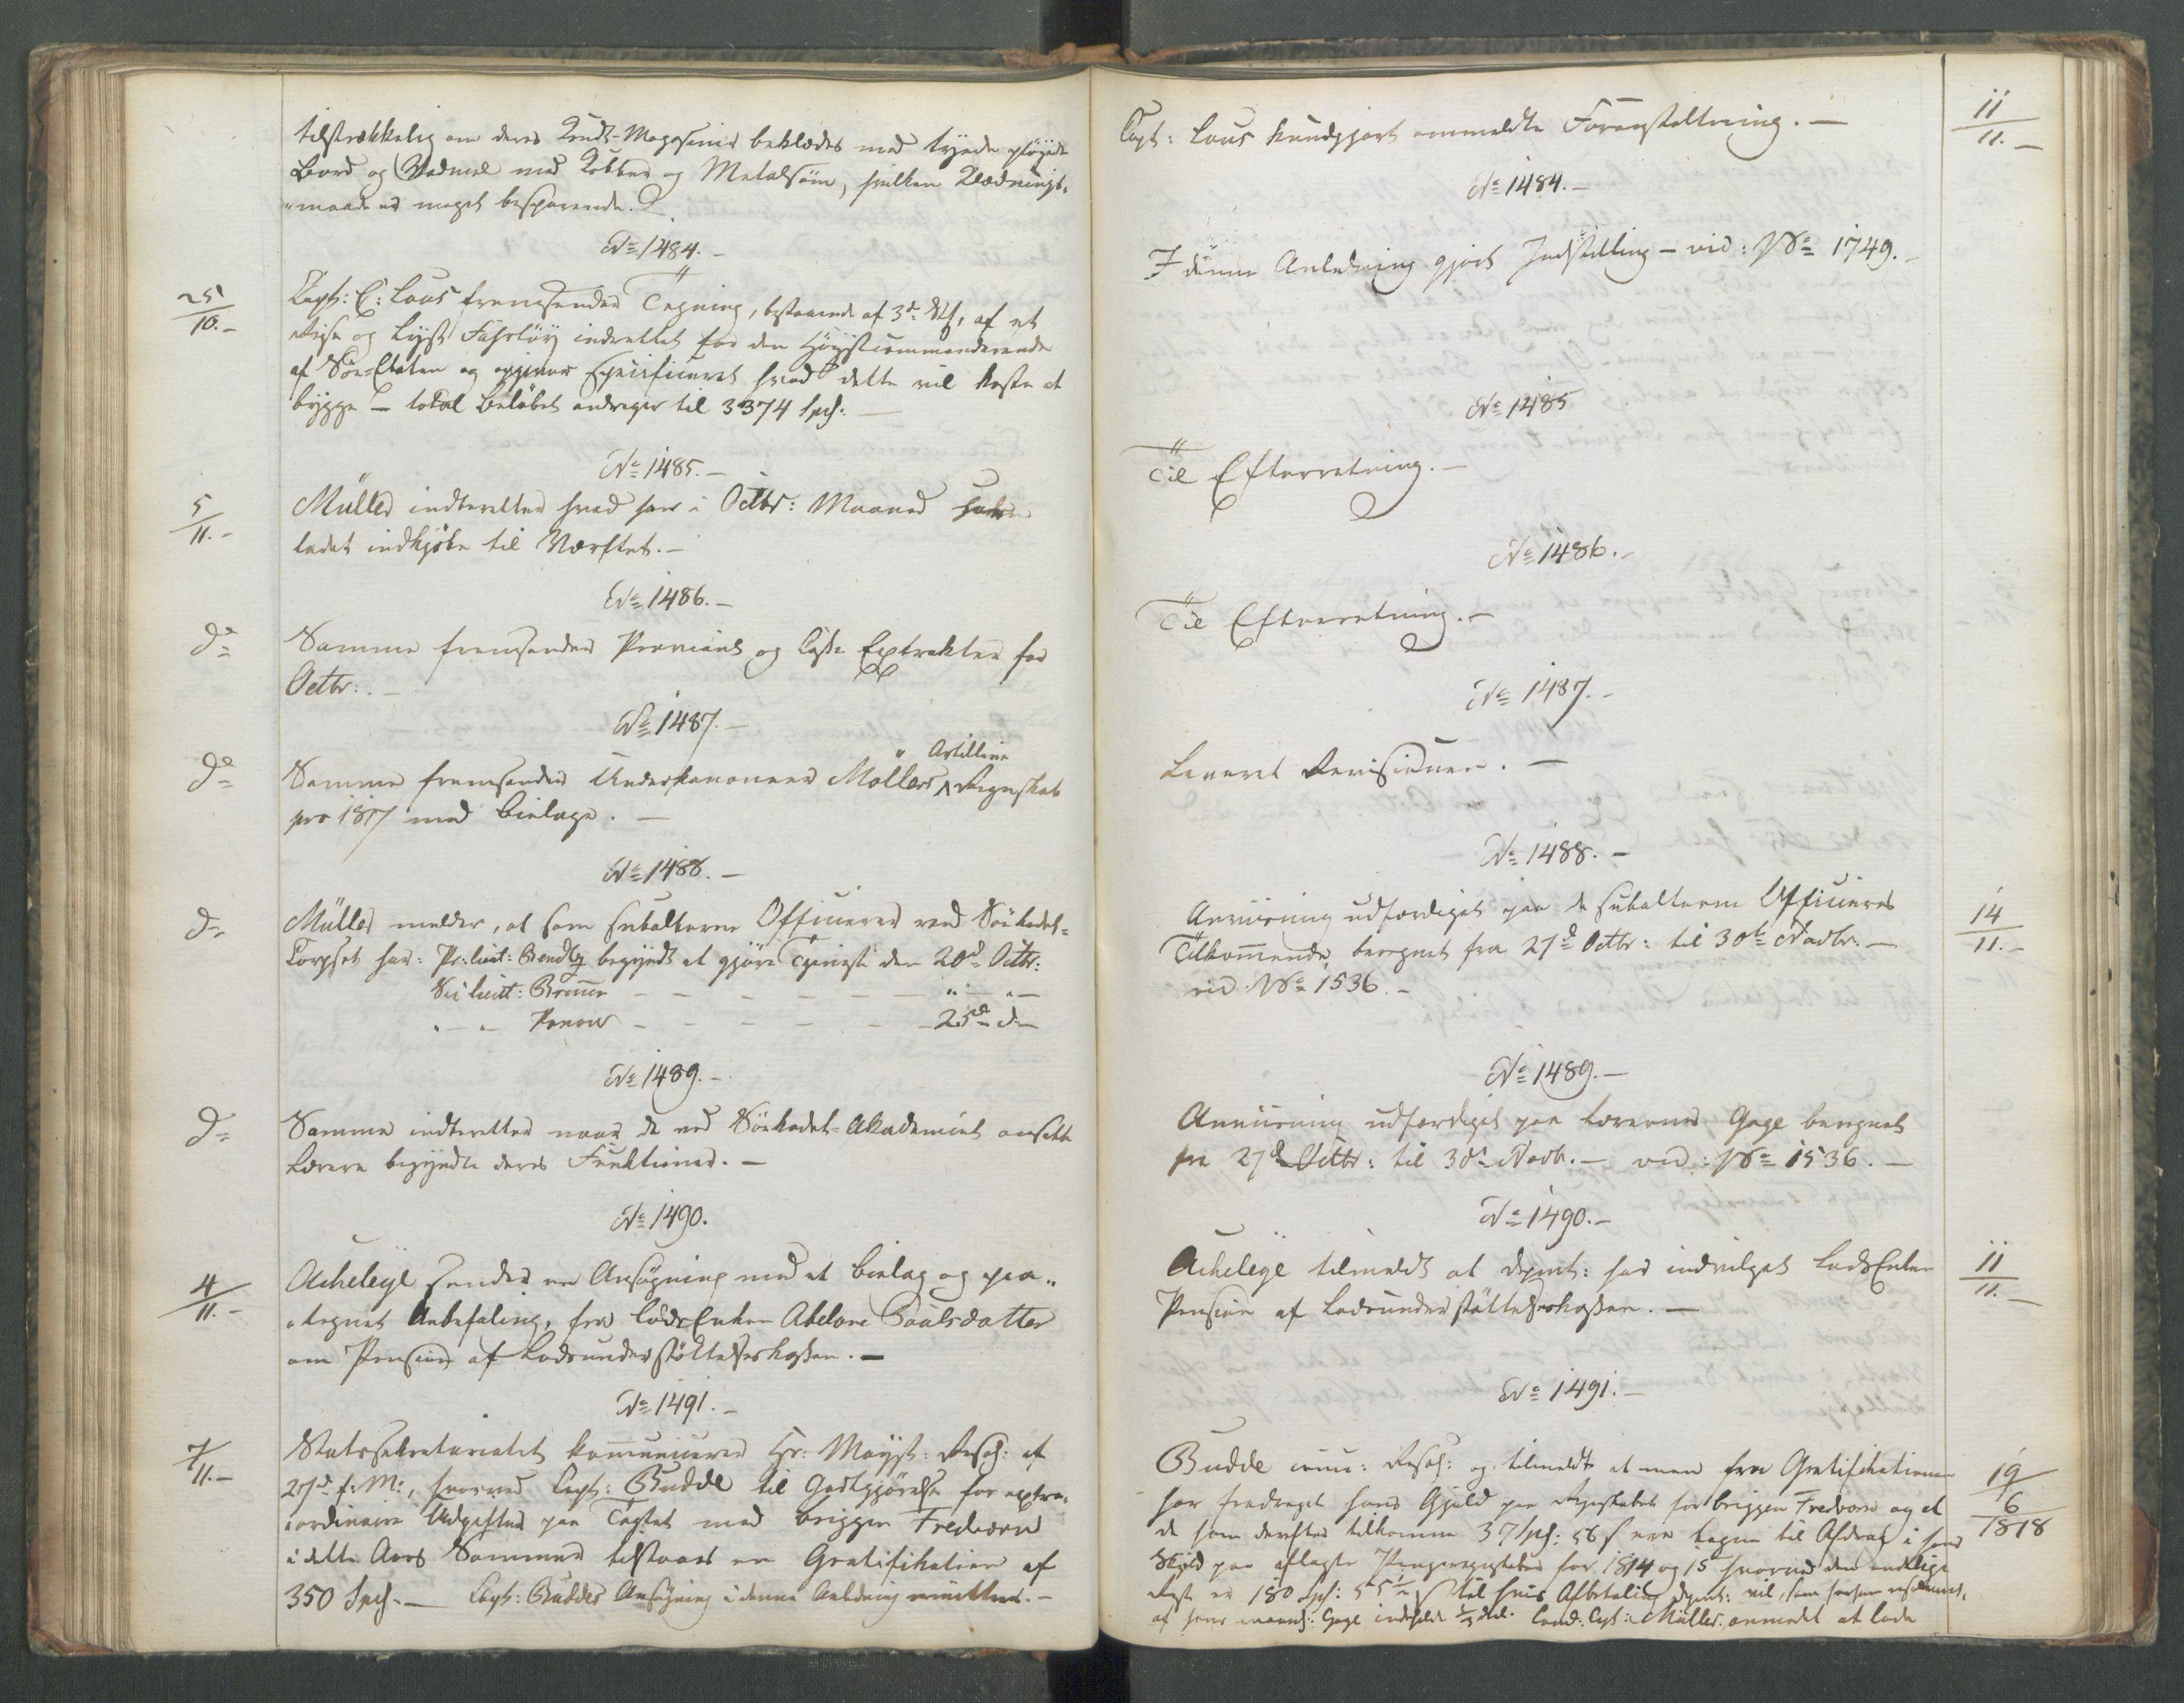 tilstrækkelig om deres Krudt-Magasiner beklædes med tyende pløyede
Bord og Vadmel med Kobber og Metalsøm, hvilken Klædnings-
maade er meget besparende.
No 1484.-
25/10.- Capt: C: Lous fremsender Tegning, bestaaende af 3de Stk, af et
Reise og Lyst Fahrtöy indrettet for den Höystcommanderende
af Söe-Etaten og opgiver specificeret hvad dette vil koste at
bygge - total Belöbet andrager til 3374 Spd: -
No 1485.-
5/11.- Müller indberetter hvad han i Octbr: Maaned
ladet indkjöbe til Værftet.-
No 1486.-
do Samme fremsender Proviant og Casse Extrakter for
Octbr: -
No 1487.-
do Samme fremsender Underkanoneer Möllers Artillerie Regnskab
pro 1817 med Bielage. -
No 1488.-
do Müller melder, at som subalterne Officierer ved Söekadet-
Corpset har: Pr: lieut: Bendtz begyndt at gjöre Tjeneste den 20de Octbr:
Sec lieut: - - - - - - " - " -
" - " - - - - - - - 25de do
No 1489.-
do Samme indberetter naar de ved Söekadet-Akademiet ansatte
Lærere begyndte deres Funktioner. -
No 1490.
4/11.- Acheleye sender en Ansøgning med et Bielag og paa-
tegnet Anbefaling, fra LodsEnken Abelone Poulsdatter
om Pension af Lodsunderstöttelseskassen. -
No 1491.-
7/11.- Statssekretariatet kommunicerer Hs: Mayst: Resol: af
27de f: M:, hvorved Capt: Budde til Godtgjörelse for extra-
ordinaire Udgifter paa Togtet med Briggen Fredvorn
i dette Aars Sommer tilstaaes en Gratifikation af
350 Spd. - Capt: Buddes Ansøgning i denne Anledning remitteres. -
Capt: Lous kundgjort ommeldte Foranstaltning. - 11/11.-
No 1484.-
I denne Anledning gjort Indstilling - vid: No 1749.-
No 1485
Til Efterretning. -
No 1486.-
Til Efterretning. -
No 1487.-
Leveret Revisionen. -
No 1488.-
Anviisning udfærdiget paa de subalterne Officierers 14/11.-
Tilkommende, beregnet fra 27de Octbr: til 30te Novbr. -
vid: No 1536.-
No 1489.-
Anviisning udfærdiget paa Lærernes Gage beregnet
fra 27de Octbr: til 30te Novb. - vid: No 1536.-
No 1490.-
Acheleye tilmeldt at Depmt: har indvilget LodsEnken 11/11.-
Pension af Lodsunderstöttelseskassen. -
No 1491.-
Budde comm: Resol: og tilmeldt at man fra Gratifikationen 19/6 1818
har fradraget hans Gjæld paa Regnskabet for Briggen Fredvorn og at
de ham derefter tilkomme 37 Spd: 56 s ere tagne til Afdrag i hans
Skyld paa aflagte Pengeregnskaber for 1814 og 15 hvorved den endelige
Rest er 180 Spd: 55 1/2 s til hvis Afbetaling Depmt: vil, som forhen resolveret,
af hans maanedl: Gage indeholde 1/3 deel. Comd: Capt: Müller anmodet at lade